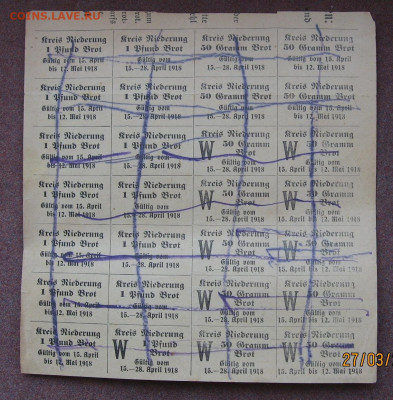 COINS.LAVE.RU
Kreis Niederung
1 Pfund Brot
Gültig vom 15. April
bis 12. Mai 1918
Kreis Niederung
1 Pfund Brot
Gültig vom
15.—28. April 1918
Kreis Niederung
50 Gramm Brot
Gültig vom
15.—28. April 1918
Kreis Niederung
50 Gramm Brot
Gültig vom 15. April
bis 12. Mai 1918
Kreis Niederung
1 Pfund Brot
Gültig vom 15. April
bis 12. Mai 1918
Kreis Niederung
1 Pfund Brot
Gültig vom
15.—28. April 1918
Kreis Niederung
50 Gramm Brot
Gültig vom
15.—28. April 1918
Kreis Niederung
50 Gramm Brot
Gültig vom 15. April
bis 12. Mai 1918
Kreis Niederung
1 Pfund Brot
Gültig vom 15. April
bis 12. Mai 1918
Kreis Niederung
1 Pfund Brot
Gültig vom
15.—28. April 1918
Kreis Niederung
W 50 Gramm
Brot
Gültig vom
15.—28. April 1918
Kreis Niederung
W 50 Gramm
Brot
Gültig vom 15. April
bis 12. Mai 1918
Kreis Niederung
1 Pfund Brot
Gültig vom 15. April
bis 12. Mai 1918
Kreis Niederung
1 Pfund Brot
Gültig vom
15.—28. April 1918
Kreis Niederung
W 50 Gramm
Brot
Gültig vom
15.—28. April 1918
Kreis Niederung
W 50 Gramm
Brot
Gültig vom 15. April
bis 12. Mai 1918
Kreis Niederung
1 Pfund Brot
Gültig vom 15. April
bis 12. Mai 1918
Kreis Niederung
1 Pfund Brot
Gültig vom
15.—28. April 1918
Kreis Niederung
W 50 Gramm
Brot
Gültig vom
15.—28. April 1918
Kreis Niederung
W 50 Gramm
Brot
Gültig vom 15. April
bis 12. Mai 1918
Kreis Niederung
1 Pfund Brot
Gültig vom 15. April
bis 12. Mai 1918
Kreis Niederung
1 Pfund Brot
Gültig vom
15.—28. April 1918
Kreis Niederung
W 50 Gramm
Brot
Gültig vom
15.—28. April 1918
Kreis Niederung
W 50 Gramm
Brot
Gültig vom 15. April
bis 12. Mai 1918
Kreis Niederung
1 Pfund Brot
Gültig vom 15. April
bis 12. Mai 1918
Kreis Niederung
W 1 Pfund
Brot
Gültig vom
15.—28. April 1918
Kreis Niederung
W 50 Gramm
Brot
Gültig vom
15.—28. April 1918
Kreis Niederung
W 50 Gramm
Brot
Gültig vom 15. April
bis 12. Mai 1918
27/03/